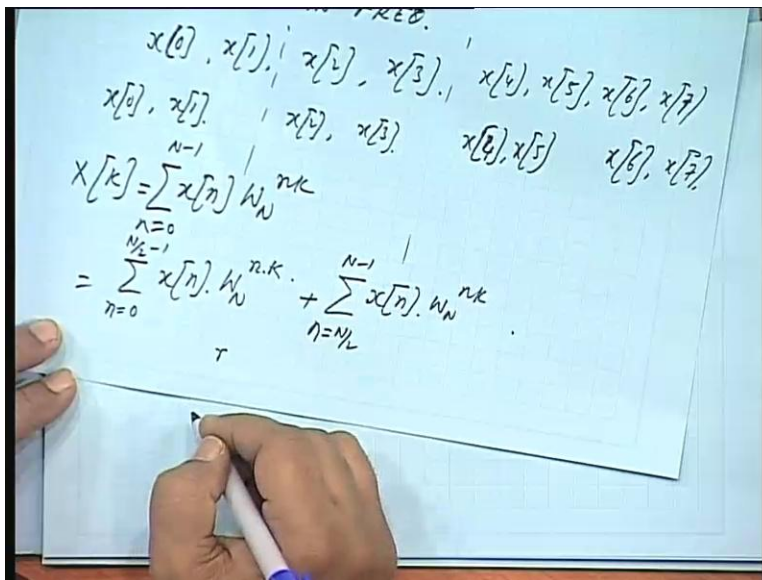 IN FREQ.
x[0], x[1], x[2], x[3], x[4], x[5], x[6], x[7]
x[0], x[1]. x[2], x[3]. x[4], x[5] x[6], x[7].
X[k] = \sum_{n=0}^{N-1} x[n] W_N^{nk}
= \sum_{n=0}^{N/2-1} x[n]. W_N^{n.k.} + \sum_{n=N/2}^{N-1} x[n]. W_N^{nk}.
r